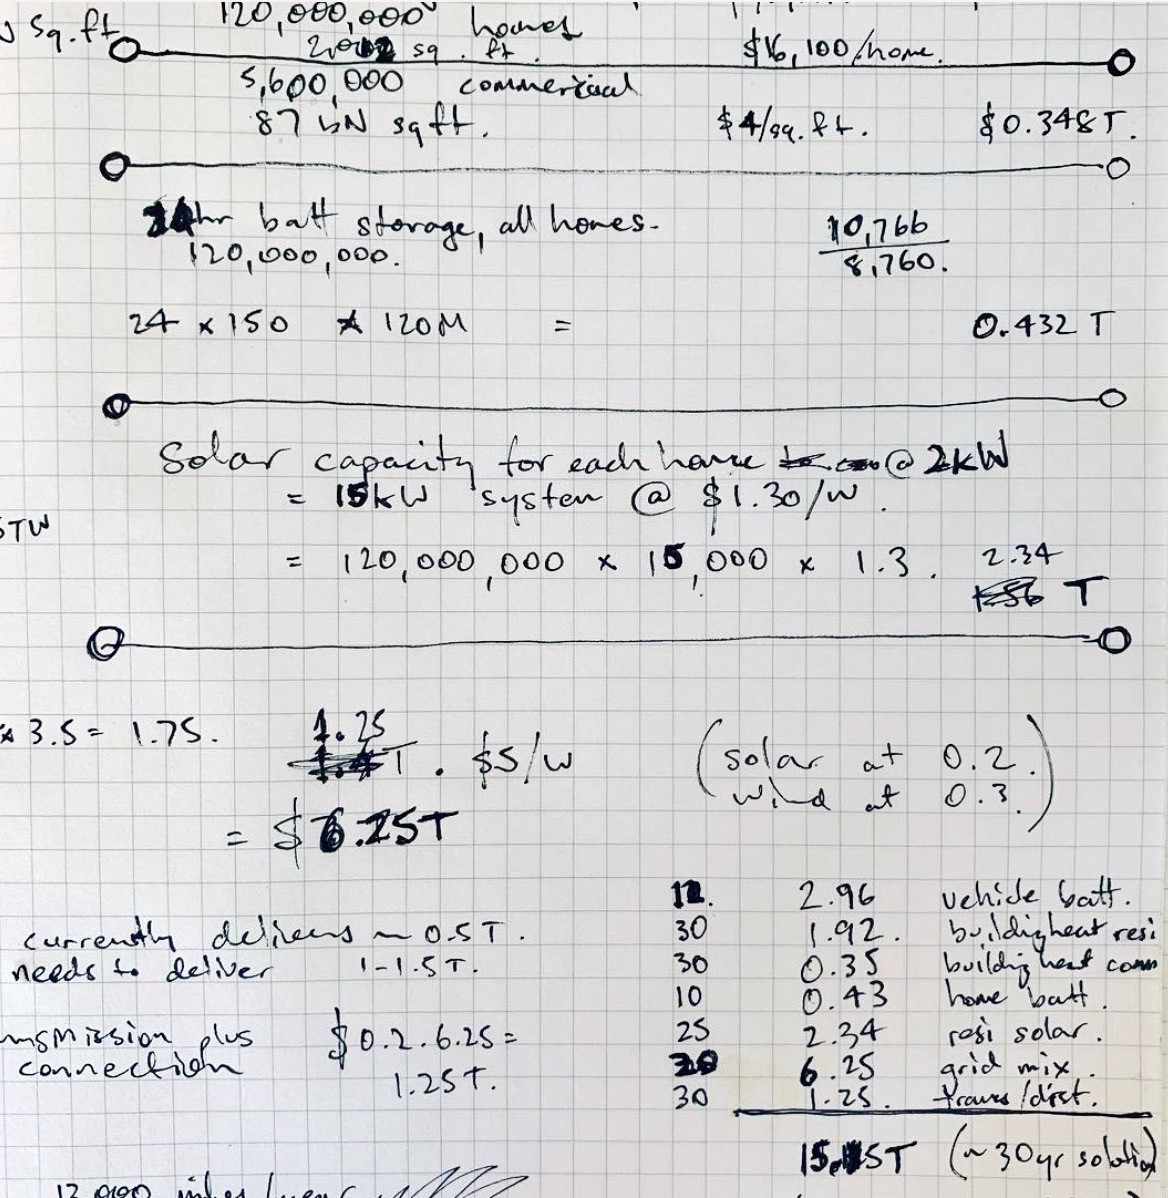 sq.ft
120,000,000 homes
sq. ft.
$16,100/home.
5,600,000 commercial
87 bN sqft. $4/sq.ft. $0.348T.
24hr batt storage, all homes.
120,000,000.
10,766
8,760.
24 x 150 * 120M = 0.432 T
Solar capacity for each home @ 2kW
= 15kW system @ $1.30/W.
STW
= 120,000,000 x 15,000 x 1.3. 2.34
T
x 3.5 = 1.75. 1.25
T. $5/W
(solar at 0.2.
wind at 0.3.)
= $6.25T
currently delivers ~ 0.5T.
needs to deliver 1-1.5T.
nsmission plus $0.2.6.25 =
connection 1.25T.
12. 2.96 vehicle batt.
30 1.92. buildigheat resi
30 0.35 buildig heat comm
10 0.43 home batt.
25 2.34 resi solar.
30 6.25 grid mix.
30 1.25. trans/dist.
T (~30yr solution)
12,000 miles/year